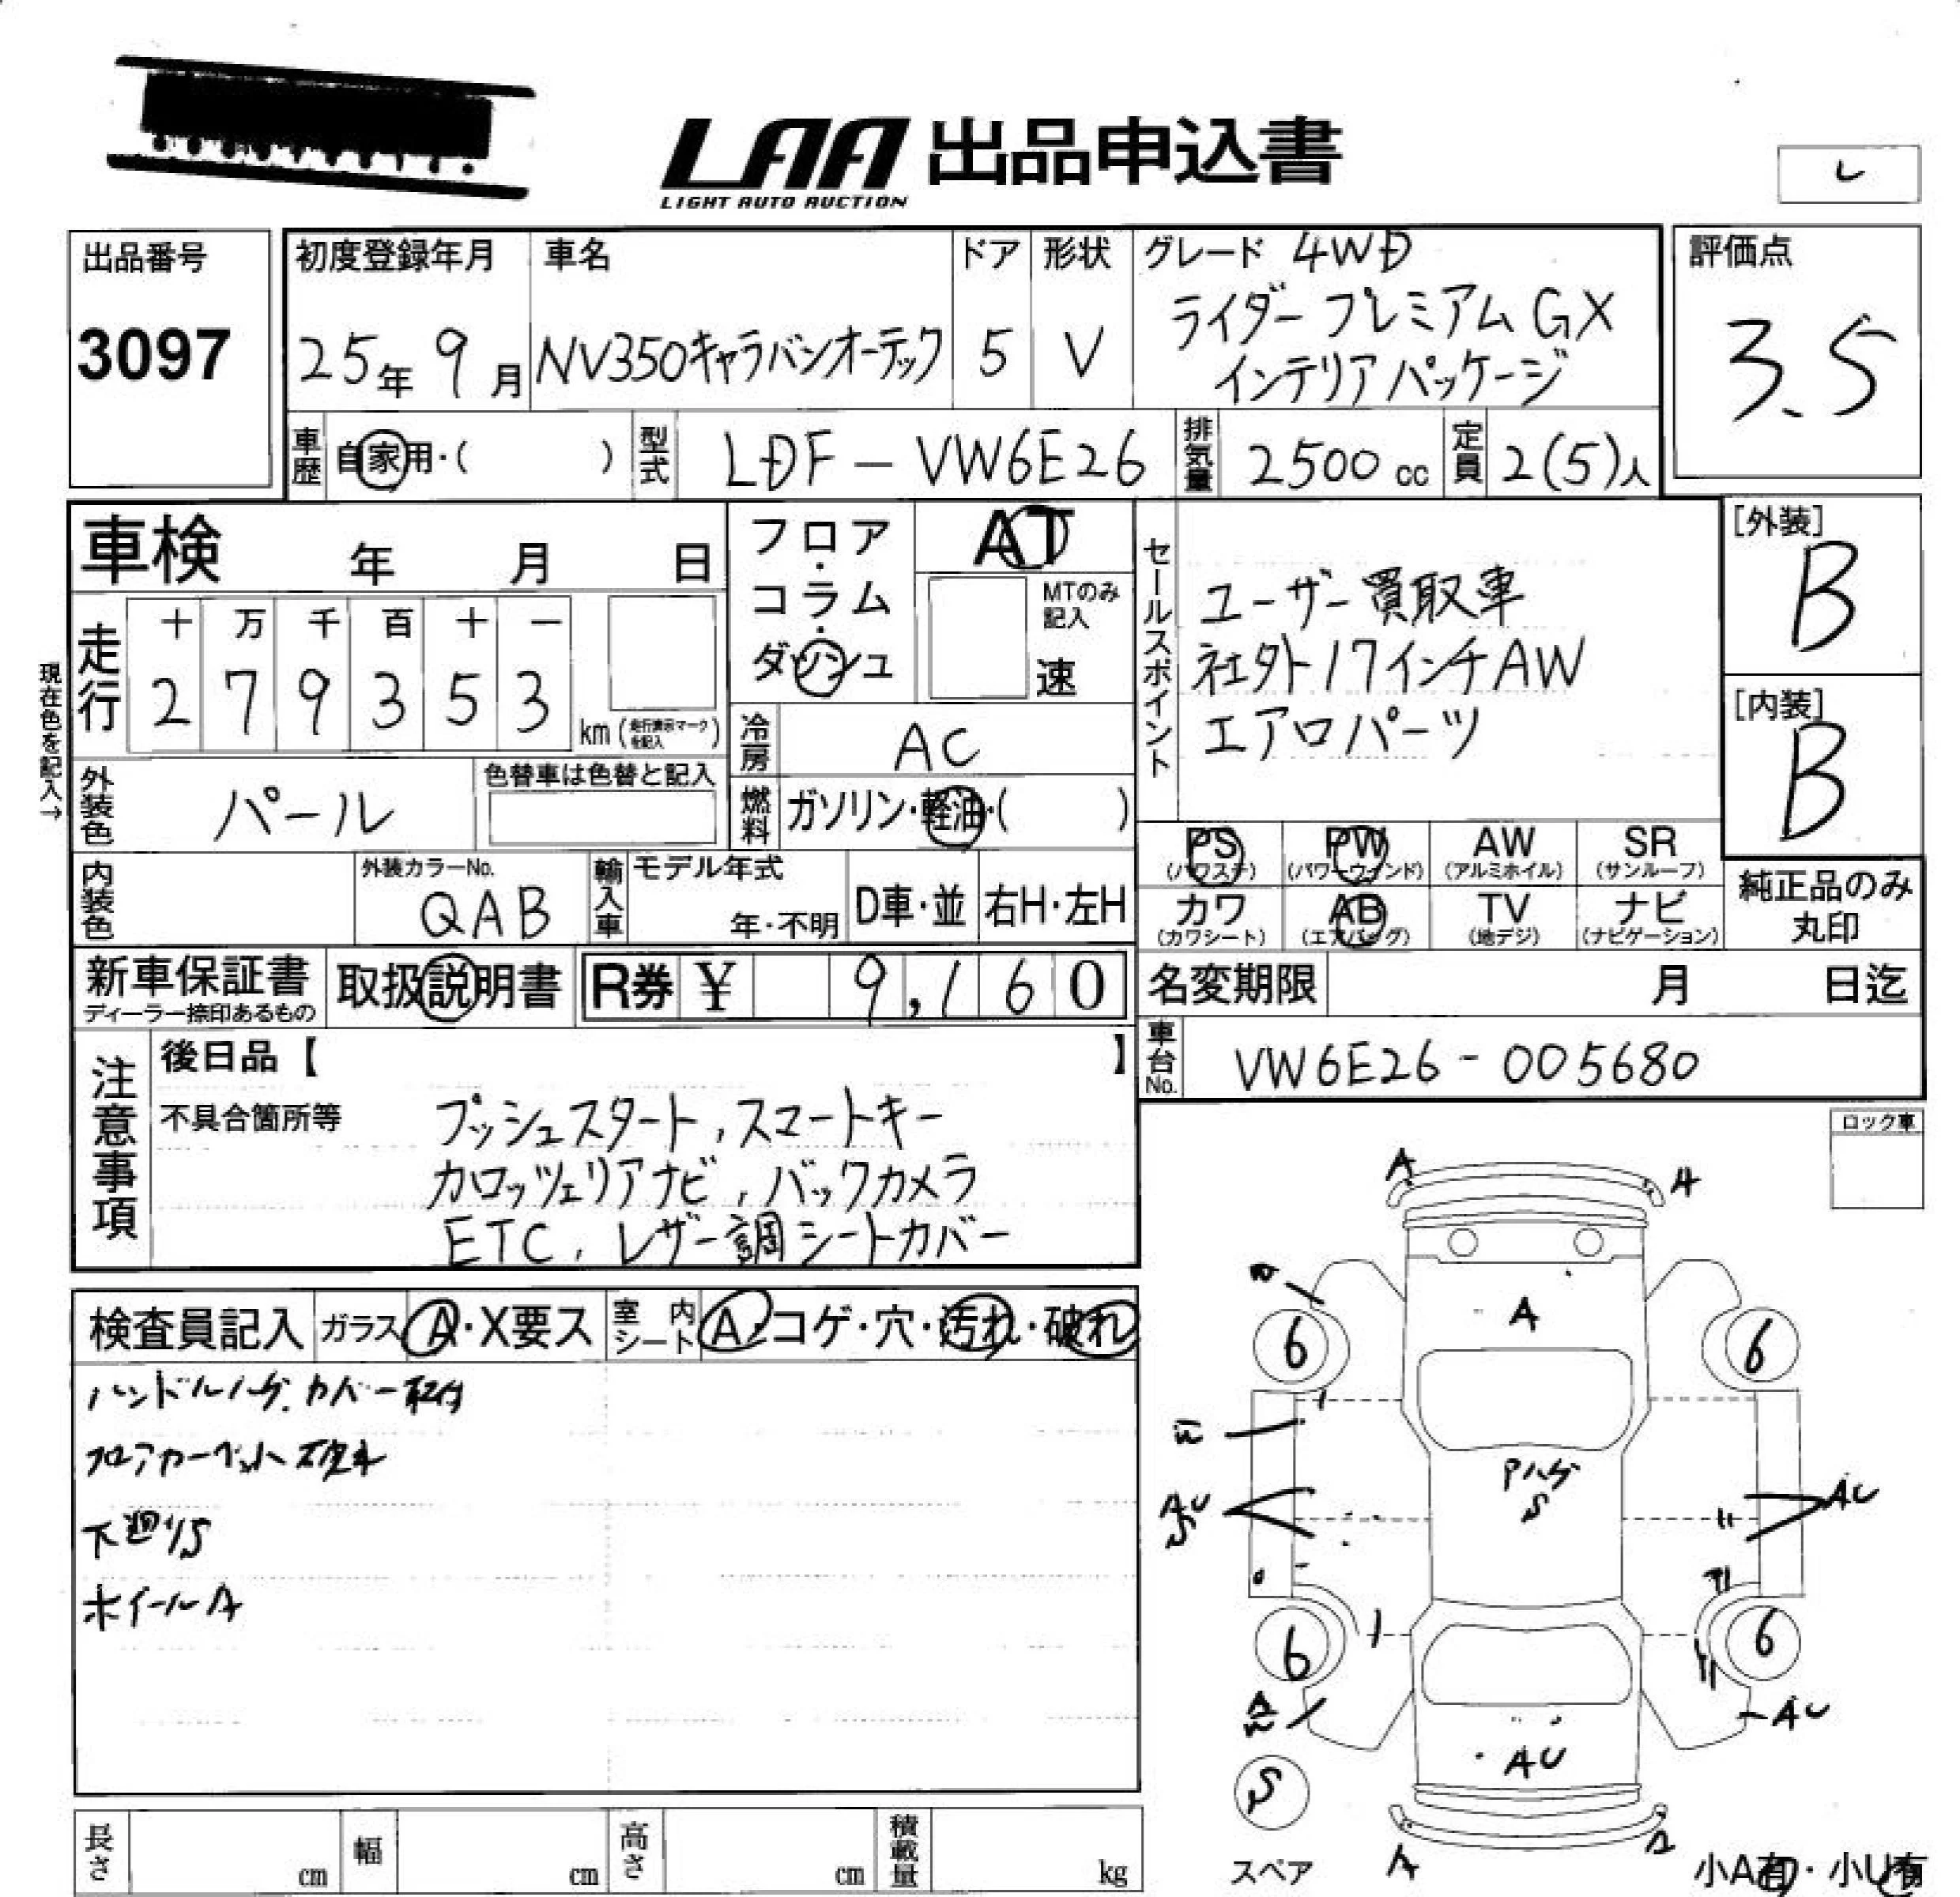 LAA 出品申込書
LIGHT AUTO AUCTION
レ
出品番号
3097
初度登録年月
25年 9月
車名
NV350キャラバンオーテック
ドア
5
形状
V
グレード 4WD
ライダー プレミアム GX
インテリア パッケージ
評価点
3.5
車歴 自家用・( )
型式 LDF - VW6E26
排気量 2500 cc
定員 2(5)人
車検 年 月 日
フロア・コラム・ダッシュ
AT
MTのみ記入
速
走行
十 万 千 百 十 一
2 7 9 3 5 3
km (走行表示マークを記入)
現在色を記入→
冷房 AC
外装色 パール
色替車は色替と記入
燃料 ガソリン・軽油・( )
内装色
外装カラーNo.
QAB
輸入車
モデル年式
年・不明
D車・並
右H・左H
セールスポイント
ユーザー買取車
社外17インチAW
エアロパーツ
[外装]
B
[内装]
B
PS (パワステ)
PW (パワーウインド)
AW (アルミホイル)
SR (サンルーフ)
カワ (カワシート)
AB (エアバッグ)
TV (地デジ)
ナビ (ナビゲーション)
純正品のみ丸印
新車保証書
ディーラー捺印あるもの
取扱説明書
R券 ¥ 9,160
名変期限 月 日迄
車台No. VW6E26-005680
注意事項
後日品【 】
不具合箇所等
プッシュスタート, スマートキー
カロッツェリアナビ, バックカメラ
ETC, レザー調シートカバー
ロック車
検査員記入
ガラス A・X要ス
室内シート A・コゲ・穴・汚れ・破れ
ハンドルハゲ. カバー取付
フロアカーペット破れ
下廻りS
ホイールA
A
A
A
6
6
Pハゲ
S
AU
AU
6
6
AU
AU
S
スペア
A
小A有・小U有
長さ cm
幅 cm
高さ cm
積載量 kg